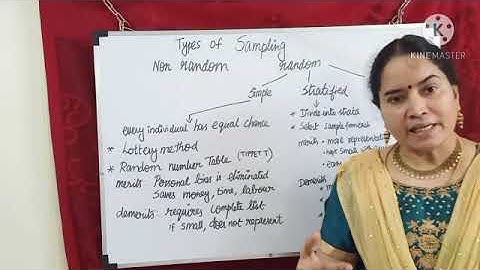 Types of Sampling
Non random random
Simple Stratified
every individual has equal chance
* Lottery method
* Random number Table (TIPPET T)
merits Personal bias is eliminated
saves money, time, labour
demerits requires complete list
if small, does not represent
• Divide into strata
• Select sample from each
merits - more representati
Demerits
K
KINEMASTER